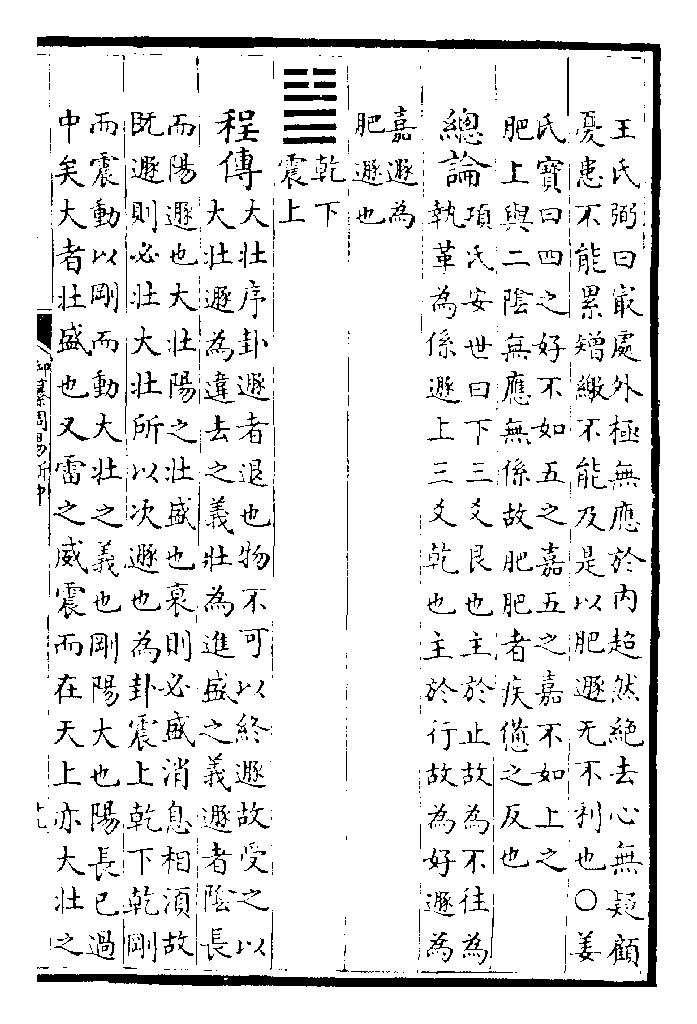 王氏弼曰㝡處外極無應於内超然絶去心無疑顧
憂患不能累矰繳不能及是以肥遯无不利也○姜
氏寶曰四之好不如五之嘉五之嘉不如上之
肥上與二陰無應無係故肥肥者疾憊之反也
總論項氏安世曰下三爻艮也主於止故為不往為
執革為係遯上三爻乾也主於行故為好遯為
嘉遯為
肥遯也
䷡乾下
震上
程傳大壯序卦遯者退也物不可以終遯故受之以
大壯遯為違去之義壯為進盛之義遯者陰長
而陽遯也大壯陽之壯盛也衰則必盛消息相須故
既遯則必壯大壯所以次遯也為卦震上乾下乾剛
而震動以剛而動大壯之義也剛陽大也陽長已過
中矣大者壯盛也又雷之威震而在天上亦大壯之
御纂周易折中